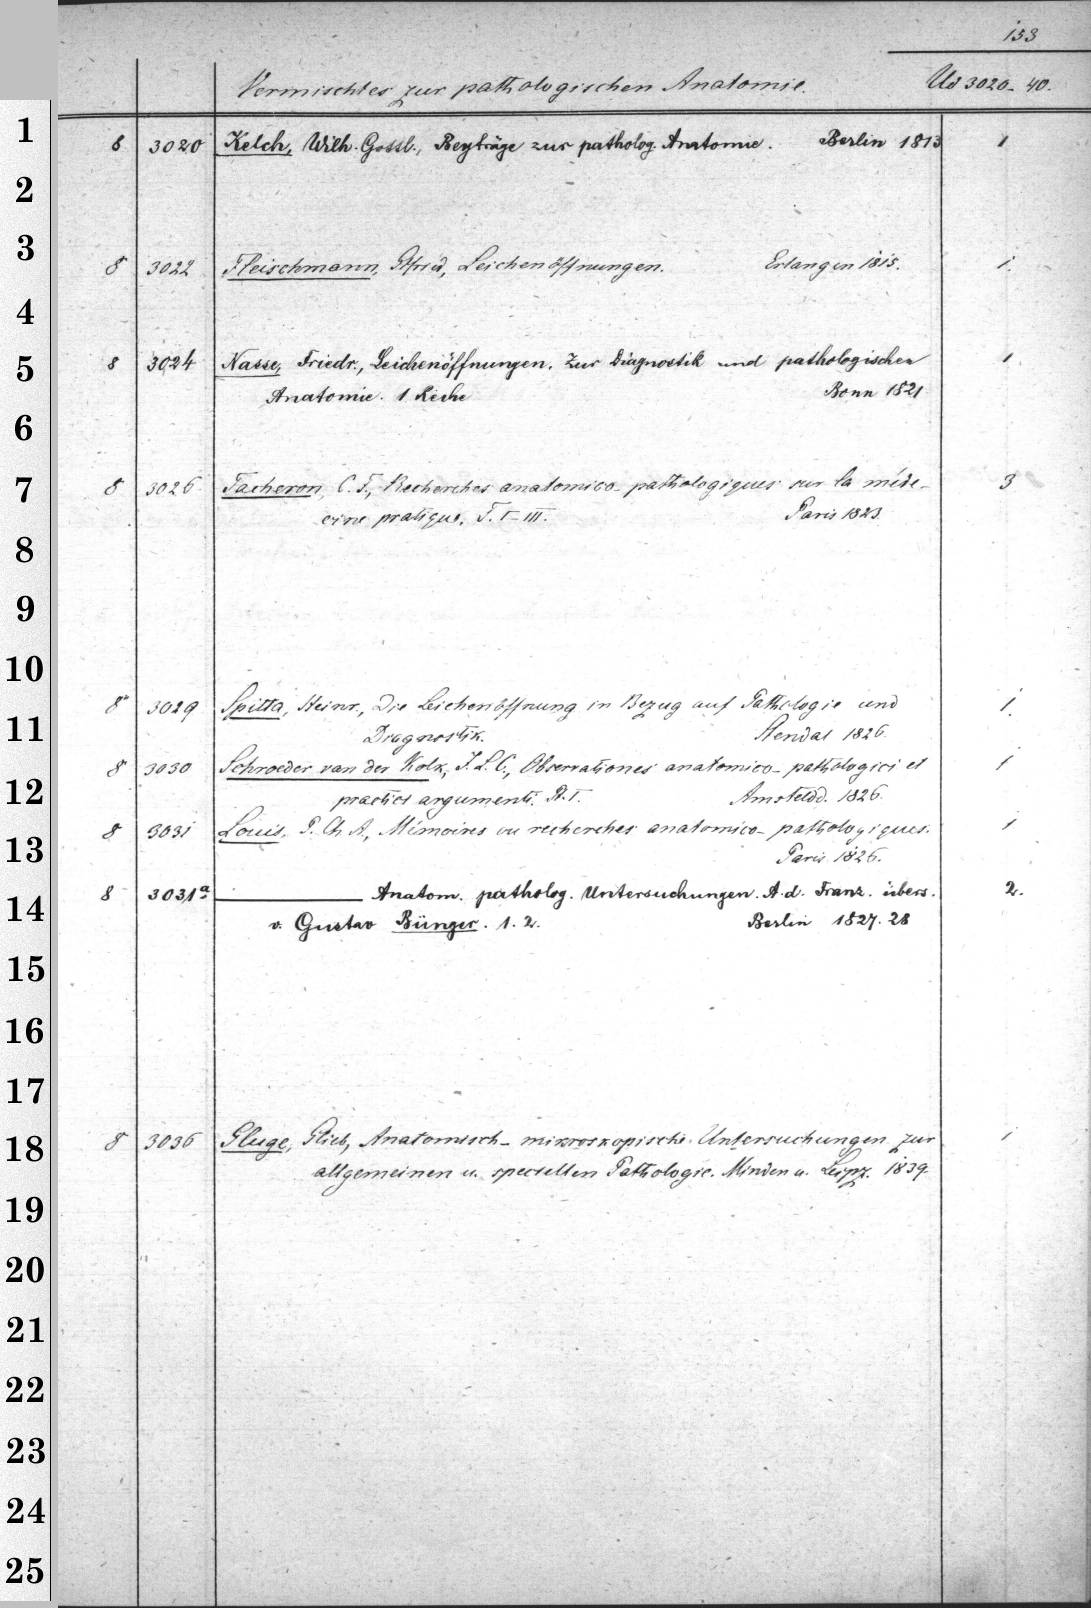 153
Vermischtes zur pathologischen Anatomie. Ud 3020-40.
1
8 3020 Kelch, Wilh. Gottl., Beyträge zur patholog. Anatomie. Berlin 1813 1
2
3
8 3022 Fleischmann, Gfried, Leichenöffnungen. Erlangen 1815. 1.
4
5
8 3024 Nasse, Friedr., Leichenöffnungen. Zur Diagnostik und pathologischen 1
Anatomie. 1 Reihe Bonn 1821
6
7
8 3026 Tacheron, C. F., Recherches anatomico-pathologiques sur la méde-
cine pratique. T. I-III. Paris 1823. 3
8
9
10
8° 3029 Spitta, Heinr., Die Leichenöffnung in Bezug auf Pathologie und 1.
11
Diagnostik. Stendal 1826.
8 3030 Schroeder van der Kolk, J. L. C., Observationes anatomico-pathologici et 1
12
practici argumenti. P. I. Amsteldd. 1826.
8 3031 Louis, P. Ch. A., Mémoires ou recherches anatomico-pathologiques. 1
13
Paris 1826.
8 3031a Anatom. patholog. Untersuchungen. A. d. Franz. übers. 2.
14
v. Gustav Bünger. 1. 2. Berlin 1827. 28
15
16
17
8 3036 Gluge, Glieb, Anatomisch-mikroskopische Untersuchungen zur 1
18
allgemeinen u. speciellen Pathologie. Minden u. Leipz. 1839.
19
20
21
22
23
24
25